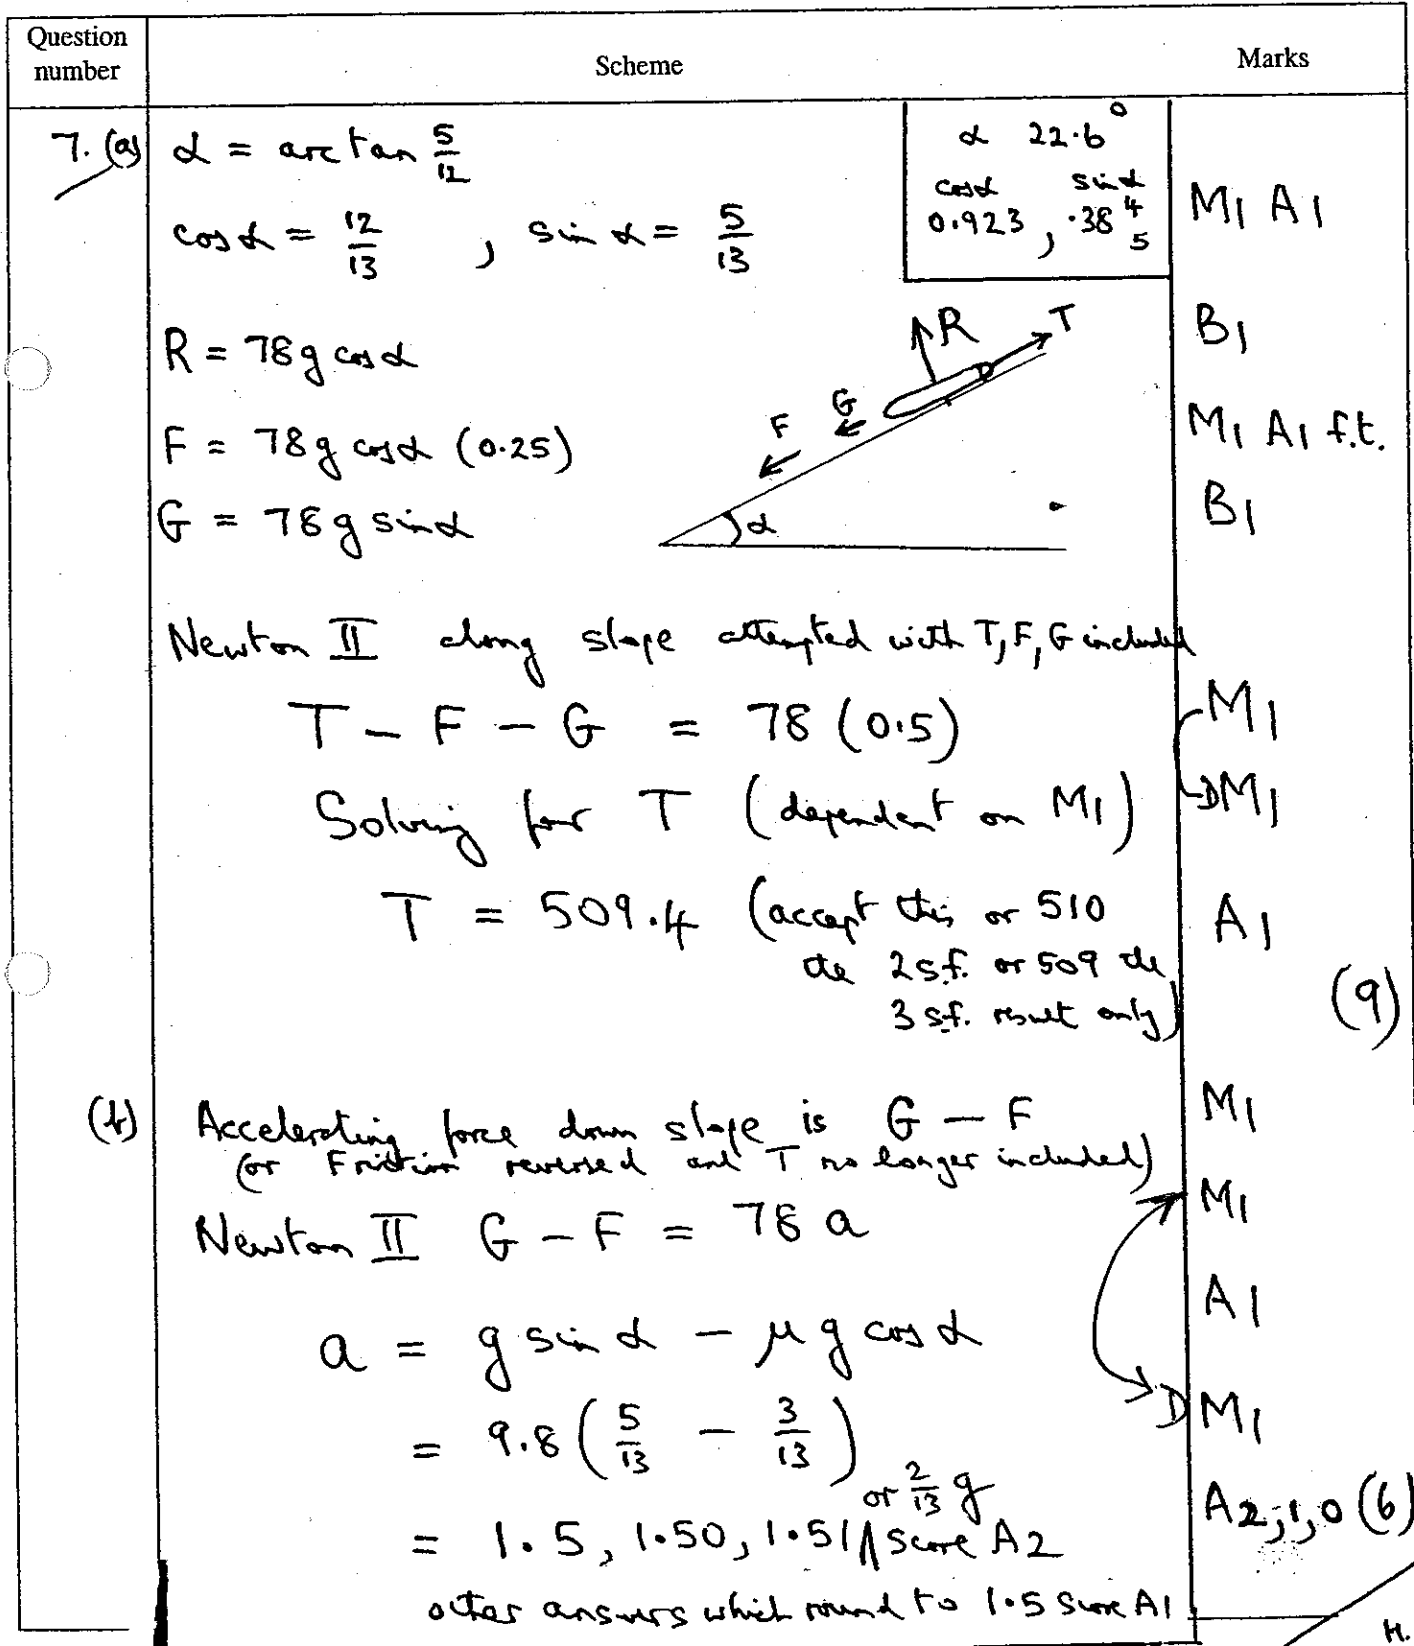 Question number
Scheme
Marks
7. (a) α = arctan 5/12
α 22.6°
cosα sinα
0.923 , .38 4/5
M1 A1
cosα = 12/13 , sinα = 5/13
R = 78g cosα
B1
R
T
G
F
α
F = 78g cosα (0.25)
M1 A1 f.t.
G = 78g sinα
B1
Newton II along slope attempted with T, F, G included
T – F – G = 78 (0.5)
M1
Solving for T (dependent on M1)
DM1
T = 509.4 (accept this or 510
the 2 s.f. or 509 the
3 s.f. result only)
A1
(9)
(b) Accelerating force down slope is G – F
M1
(or Friction reversed and T no longer included)
M1
Newton II G – F = 78 a
A1
a = g sinα – μ g cosα
= 9.8 (5/13 – 3/13)
DM1
or 2/13 g
= 1.5, 1.50, 1.51 score A2
A2,1,0 (6)
other answers which round to 1.5 score A1
H.